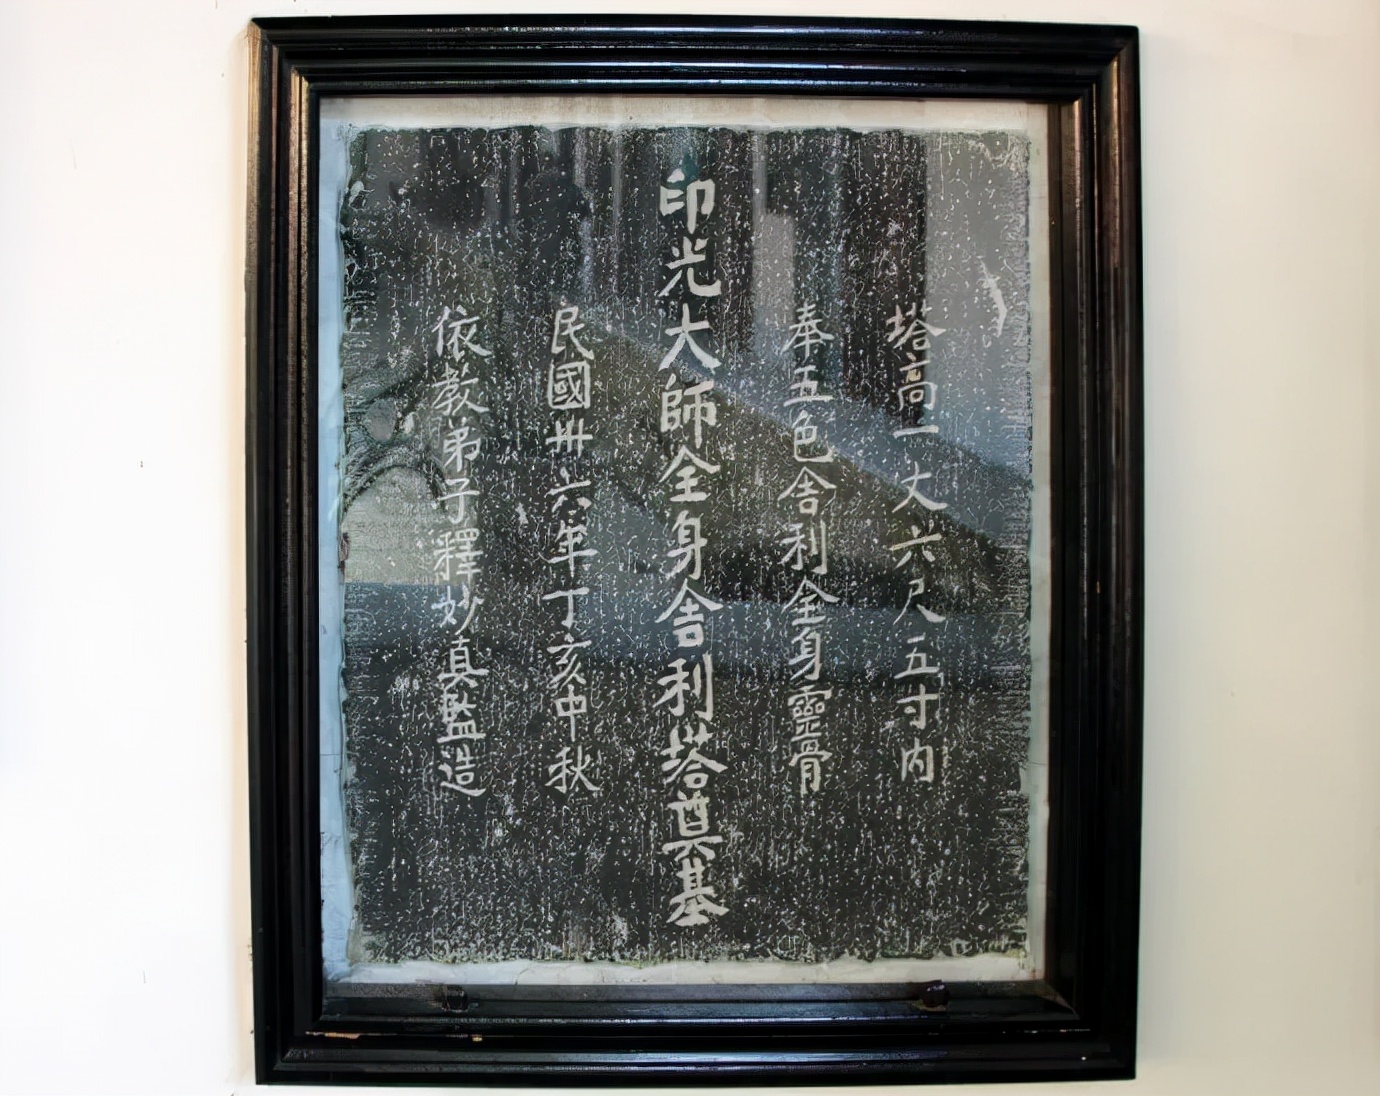 塔高一丈六尺五寸内
奉五色舍利全身靈骨
印光大師全身舍利塔奠基
民國卅六年丁亥中秋
依教弟子釋妙真監造